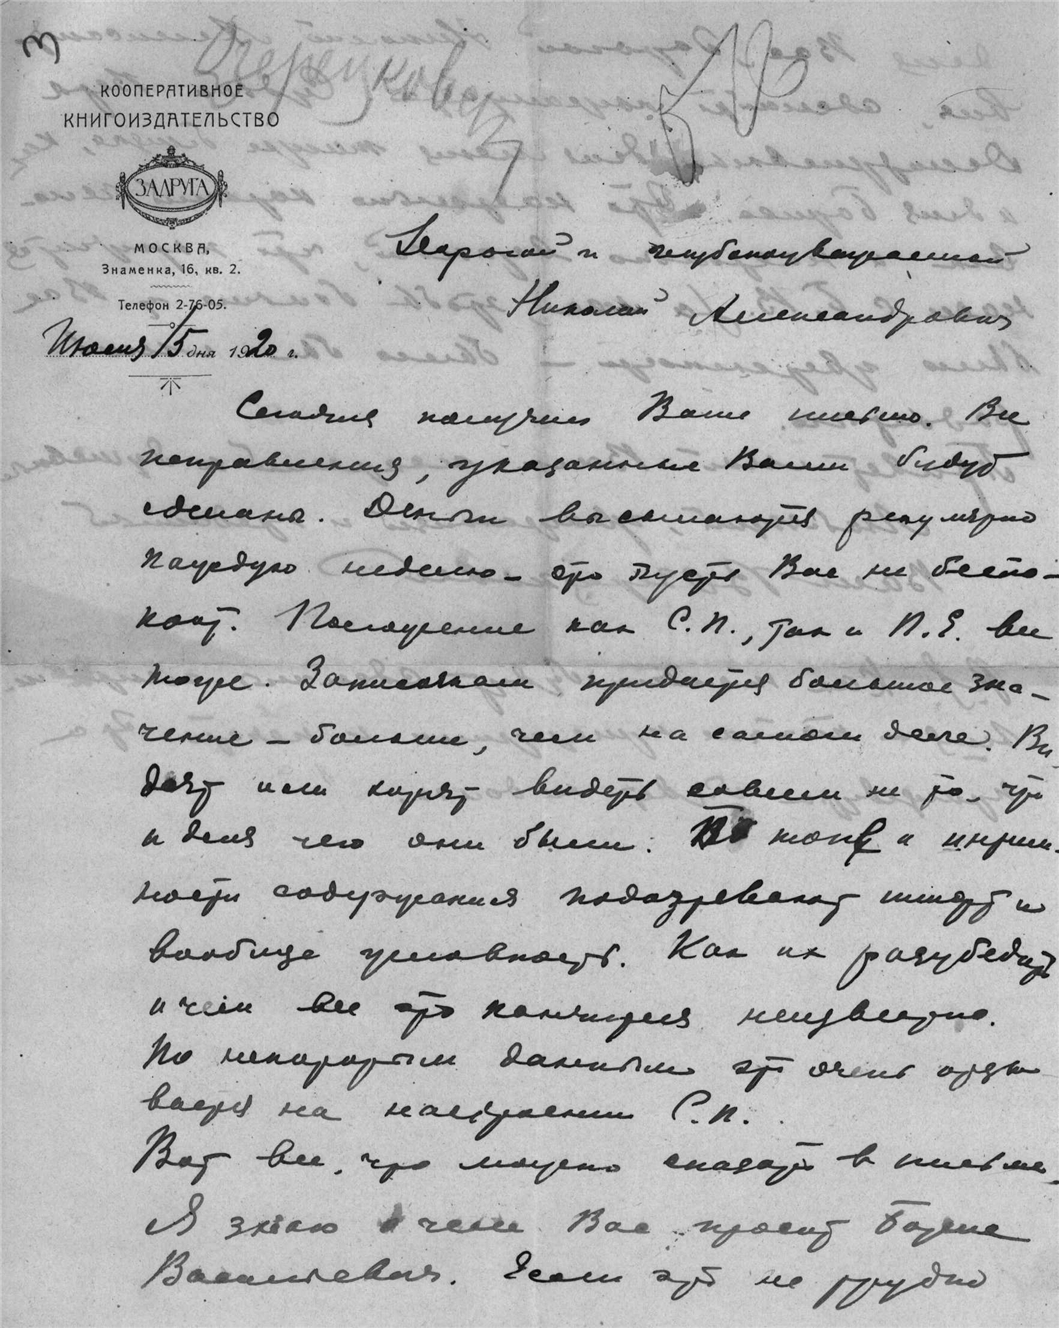 3
Черепков
КООПЕРАТИВНОЕ
КНИГОИЗДАТЕЛЬСТВО
ЗАДРУГА
МОСКВА,
Знаменка, 16, кв. 2.
Телефон 2-76-05.
Июля 15 дня 1920 г.
Дорогой и глубокоуважаемый
Николай Александрович
Сегодня получил Ваше письмо. Все
исправления, указанные Вами будут
сделаны. Деньги высылаются регулярно
каждую неделю – это пусть Вас не беспо-
коит. Положение как С.П., так и П.Е. все
то же. Запискам придается большое зна-
чение – больше, чем на самом деле. Ви-
дят или хотят видеть совсем не то, что
и для чего они были. По тону и интим-
ности содержания подозревают шифр и
вообще условность. Как их разубедить
и чем все это кончится неизвестно.
По некоторым данным это очень отзы-
вается на настроении С.П.
Вот все, что можно сказать в письме.
Я знаю о чем Вас просит Борис
Васильевич. Если это не трудно